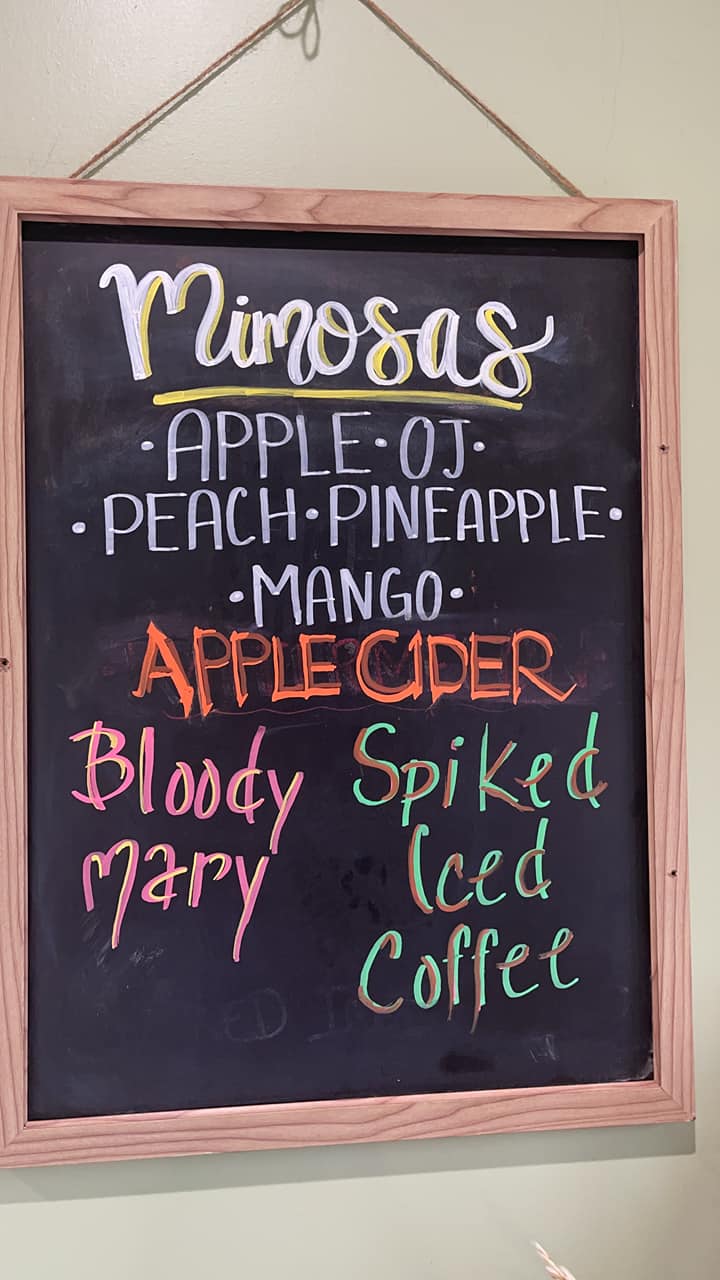 Mimosas
·APPLE·OJ·
·PEACH·PINEAPPLE·
·MANGO·
APPLE CIDER
Bloody Mary
Spiked Iced Coffee